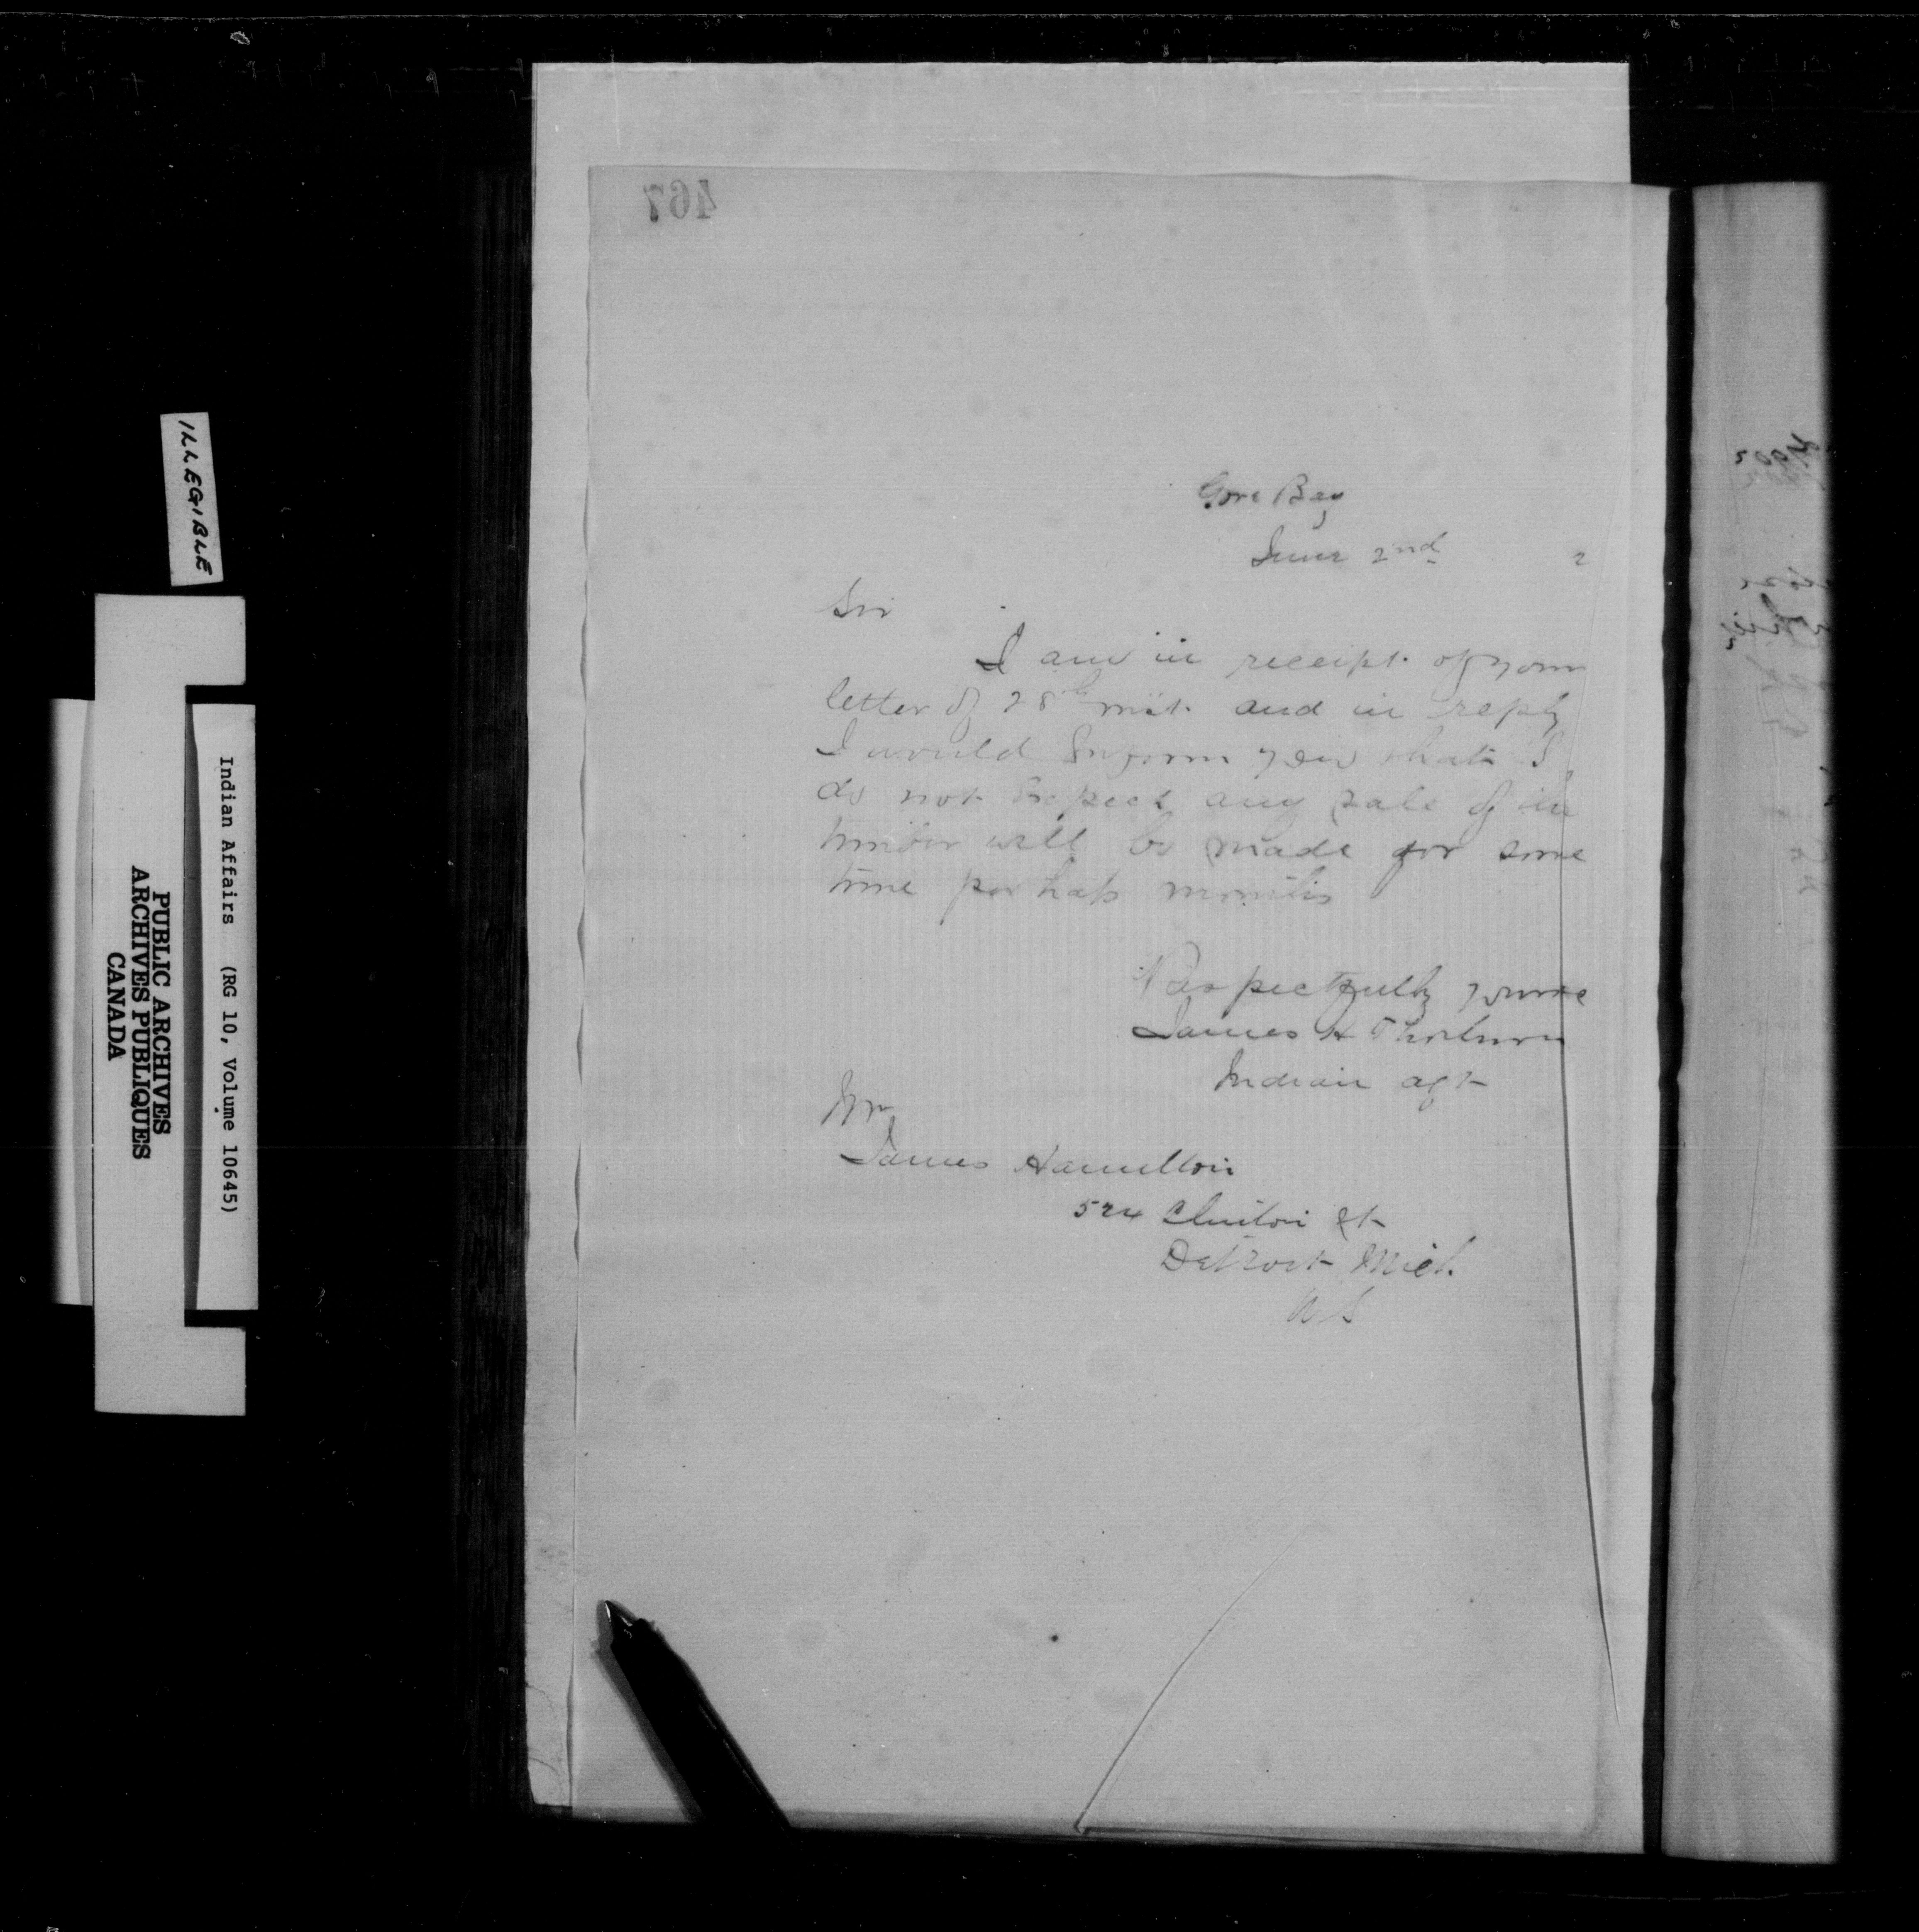 467
Gore Bay
June 2nd 2
Sir
I am in receipt of your
letter of 28th inst. and in reply
I would inform you that I
do not expect any sale of the
timber will be made for some
time perhaps months
Respectfully yours
James H Thorburn
Indian agt
Mr
James Hamilton
524 Clinton St
Detroit Mich.
U S
ILLEGIBLE
Indian Affairs (RG 10, Volume 10645)
PUBLIC ARCHIVES
ARCHIVES PUBLIQUES
CANADA